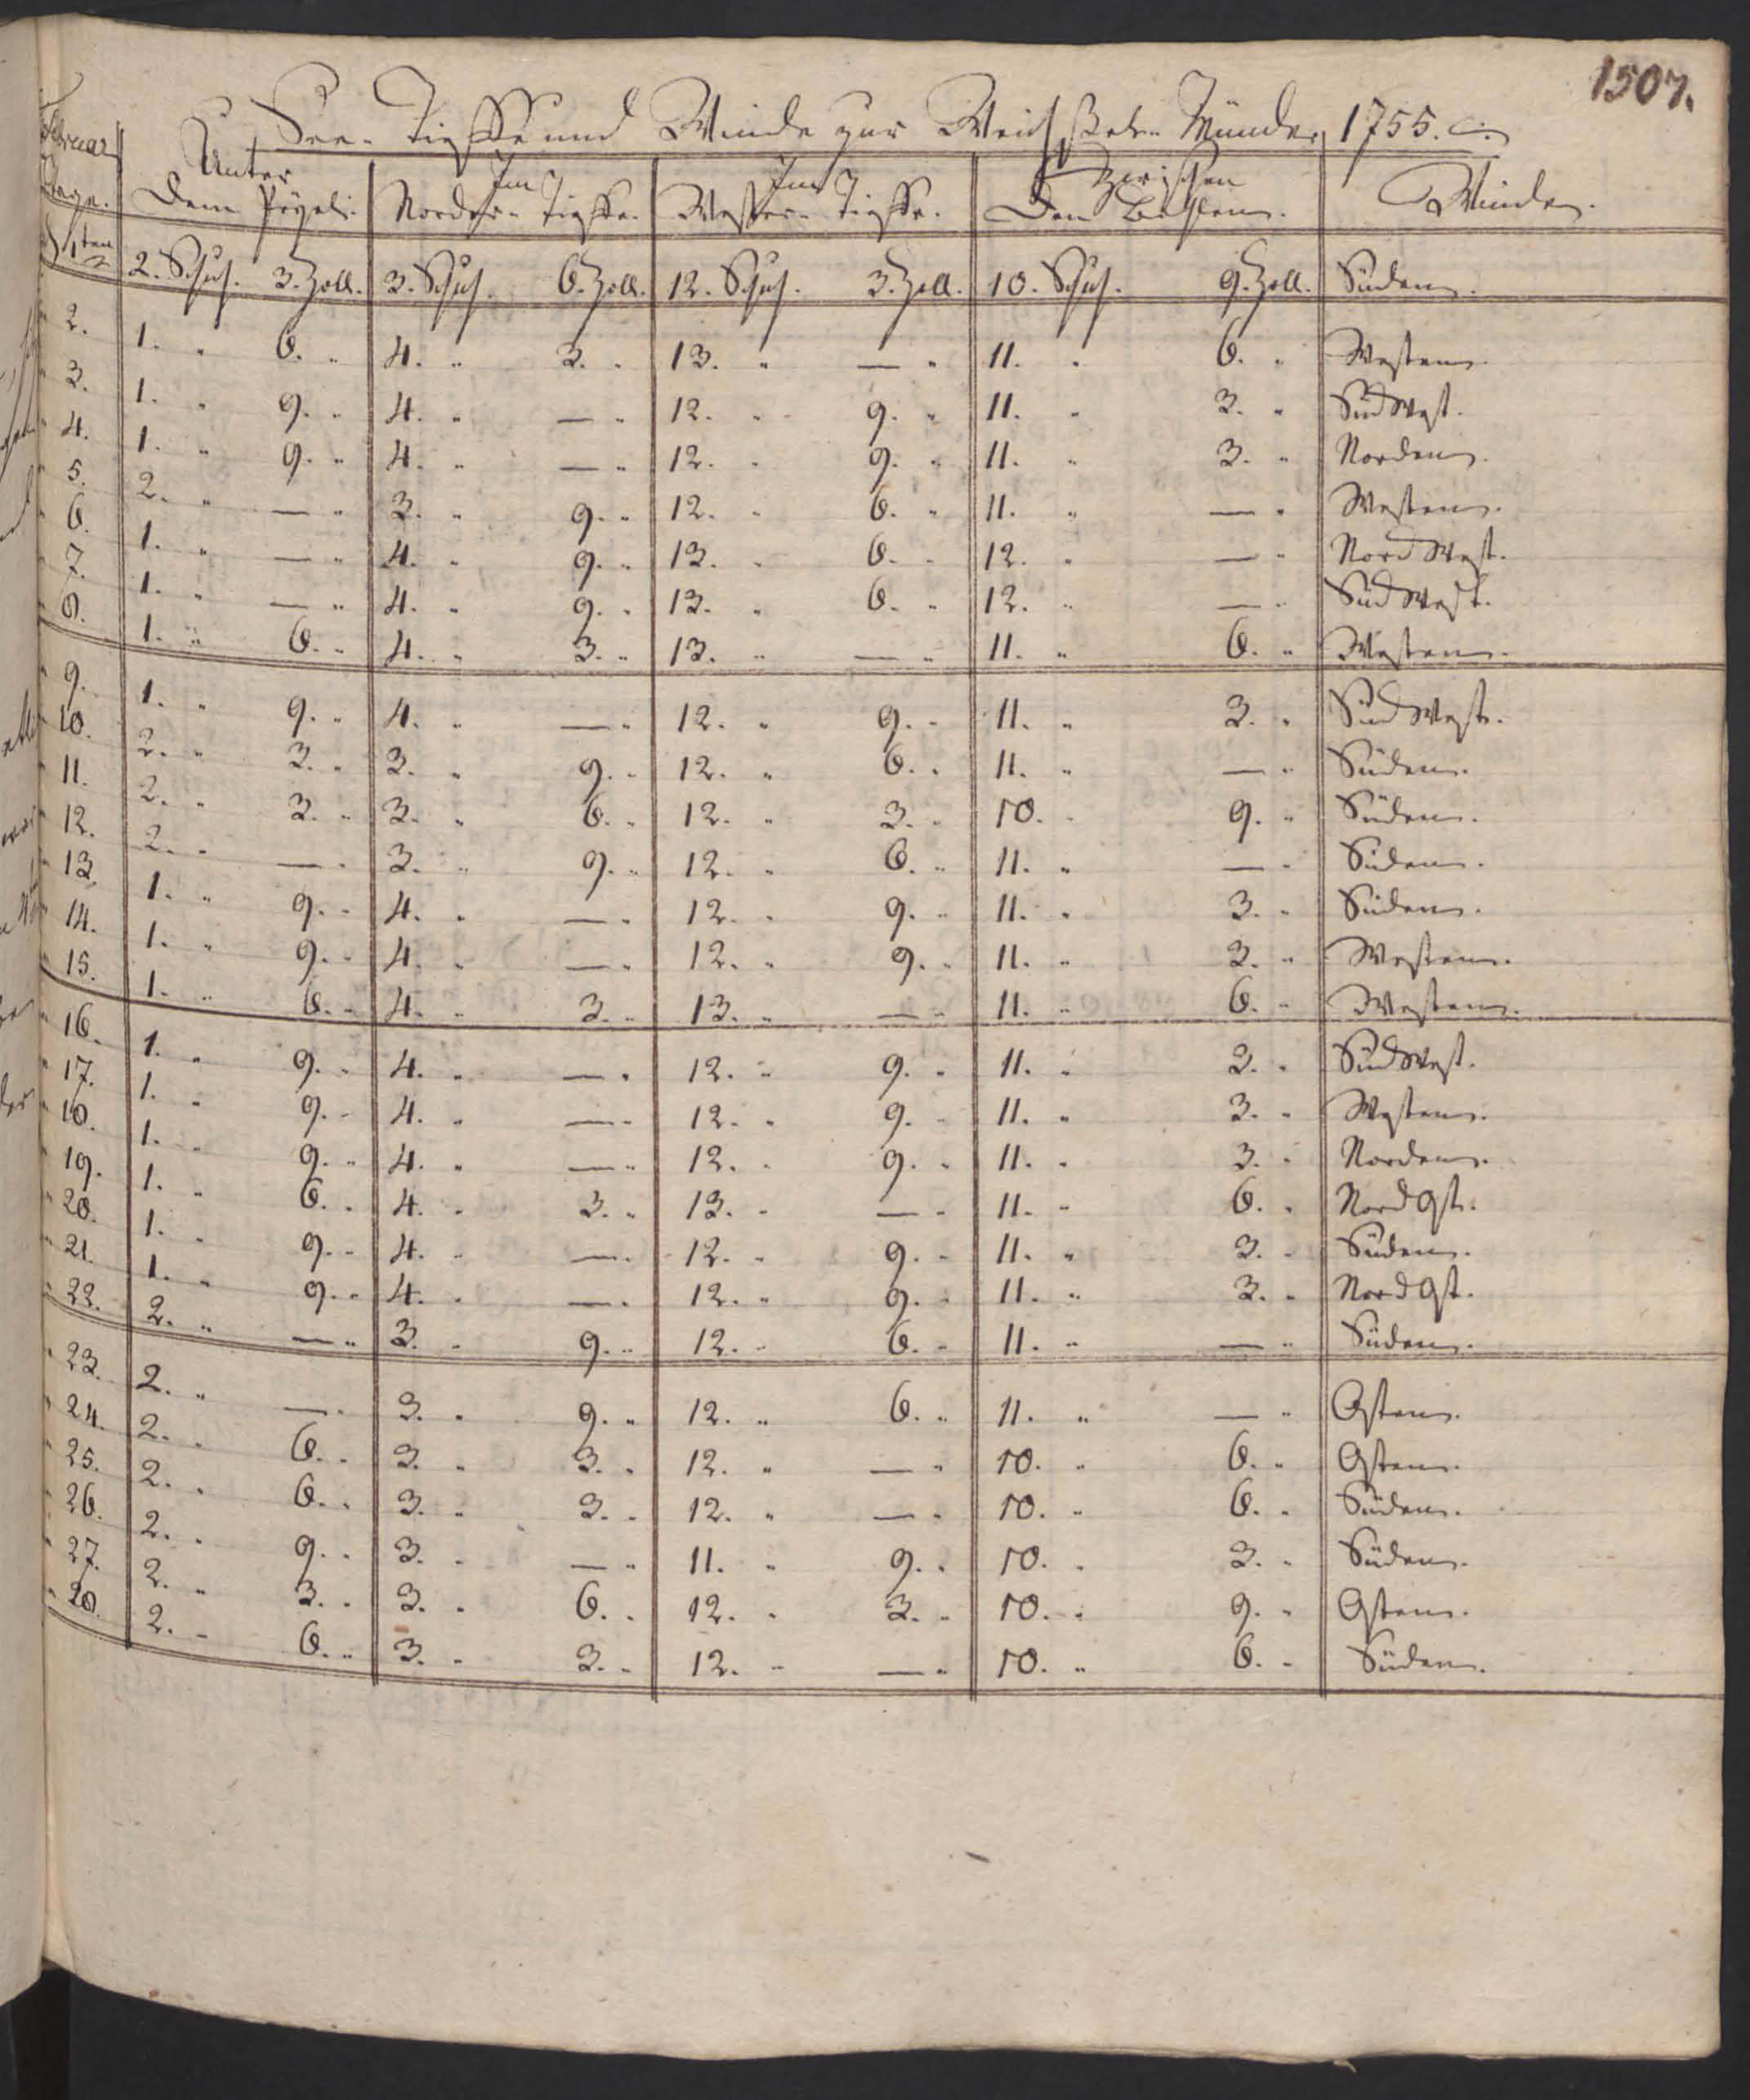 1507.
See- Tieffe und Winde zur Weichßel- Münde, 1755.
Februar Tage. Unter dem Pegel. Im Norder- Tieffe. Im Wester- Tieffe. Zwischen den Winde.
1ten 2. Schuh. 3. Zoll. 3. Schuh. 6. Zoll. 12. Schuh. 3. Zoll. 10. Schuh. 9. Zoll. Süden.
2. 1. " 6. " 4. " 3. " 13. " — " 11. " 6. " Westen.
3. 1. " 9. " 4. " — " 12. " 9. " 11. " 3. " Süd West.
4. 1. " 9. " 4. " — " 12. " 9. " 11. " 3. " Norden.
5. 2. " — " 3. " 9. " 12. " 6. " 11. " — " Westen.
6. 1. " — " 4. " 9. " 13. " 6. " 12. " — " Nord West.
7. 1. " — " 4. " 9. " 13. " 6. " 12. " — " Süd West.
8. 1. " 6. " 4. " 3. " 13. " — " 11. " 6. " Westen.
9. 1. " 9. " 4. " — " 12. " 9. " 11. " 3. " Süd West.
10. 2. " 3. " 3. " 9. " 12. " 6. " 11. " — " Süden.
11. 2. " 3. " 3. " 6. " 12. " 3. " 10. " 9. " Süden.
12. 2. " — " 3. " 9. " 12. " 6. " 11. " — " Süden.
13. 1. " 9. " 4. " — " 12. " 9. " 11. " 3. " Süden.
14. 1. " 9. " 4. " — " 12. " 9. " 11. " 3. " Westen.
15. 1. " 6. " 4. " 3. " 13. " — " 11. " 6. " Westen.
16. 1. " 9. " 4. " — " 12. " 9. " 11. " 3. " Süd West.
17. 1. " 9. " 4. " — " 12. " 9. " 11. " 3. " Westen.
18. 1. " 9. " 4. " — " 12. " 9. " 11. " 3. " Norden.
19. 1. " 6. " 4. " 3. " 13. " — " 11. " 6. " Nord Ost.
20. 1. " 9. " 4. " — " 12. " 9. " 11. " 3. " Süden.
21. 1. " 9. " 4. " — " 12. " 9. " 11. " 3. " Nord Ost.
22. 2. " — " 3. " 9. " 12. " 6. " 11. " — " Süden.
23. 2. " — " 3. " 9. " 12. " 6. " 11. " — " Osten.
24. 2. " 6. " 3. " 3. " 12. " — " 10. " 6. " Osten.
25. 2. " 6. " 3. " 3. " 12. " — " 10. " 6. " Süden.
26. 2. " 9. " 3. " — " 11. " 9. " 10. " 3. " Süden.
27. 2. " 3. " 3. " 6. " 12. " 3. " 10. " 9. " Osten.
28. 2. " 6. " 3. " 3. " 12. " — " 10. " 6. " Süden.